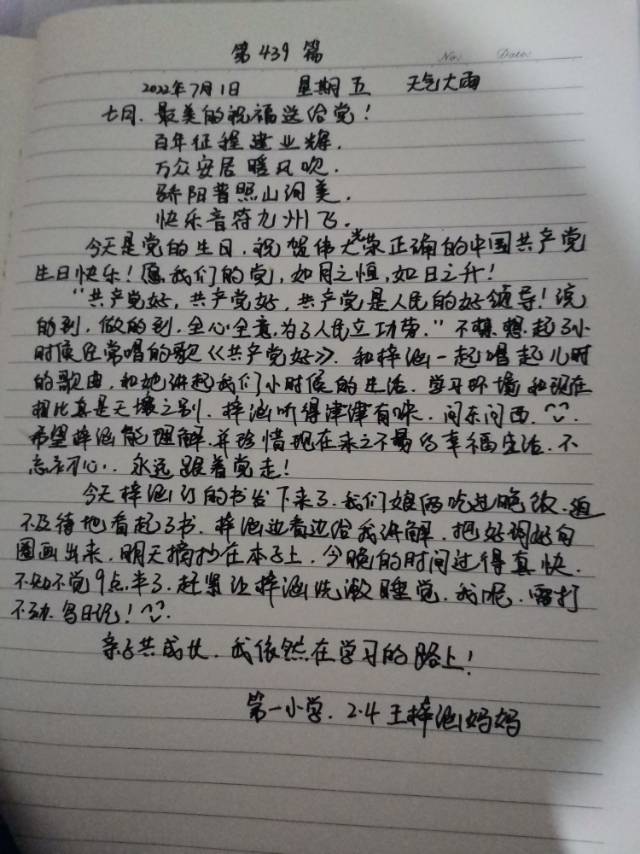 第439篇
No. Date
2022年7月1日 星期五 天气大雨
七月、最美的祝福送给党！
百年征程建业辉.
万众安居暖风吹.
骄阳普照山河美.
快乐音符九州飞.
今天是党的生日,祝贺伟大光荣正确的中国共产党
生日快乐！愿我们的党,如月之恒,如日之升！
“共产党好,共产党好,共产党是人民的好领导！说
的到,做的到,全心全意为了人民立功劳.”不想想起了小
时候经常唱的歌《共产党好》.和梓涵一起唱起儿时
的歌曲,和她讲起我们小时候的生活.学习环境和现在
相比真是天壤之别.梓涵听得津津有味.问东问西.
希望梓涵能理解.并珍惜现在来之不易的幸福生活.不
忘初心.永远跟着党走！
今天梓涵订的书发下来了.我们娘俩吃过晚饭.迫
不及待地看起了书.梓涵边看边给我讲解.把好词好句
圈画出来,明天摘抄在本子上.今晚的时间过得真快.
不知不觉9点半了.赶紧让梓涵洗漱睡觉.我呢.雷打
不动.写日记！
亲子共成长.我依然在学习的路上！
第一小学.2.4王梓涵妈妈